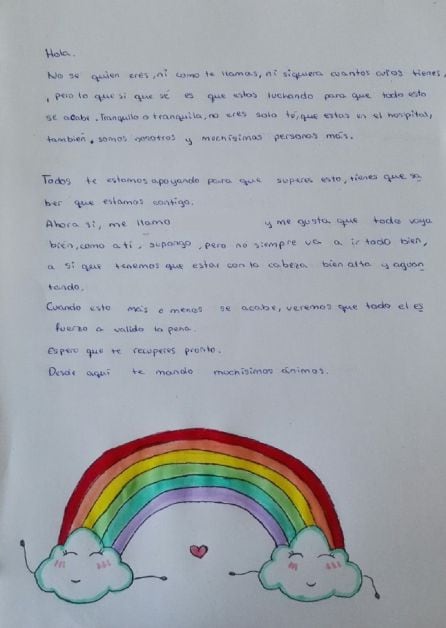 Hola.
No se quien eres, ni como te llamas, ni siquiera cuantos años tienes,
, pero lo que si que sé es que estas luchando para que todo esto
se acabe. Tranquilo o tranquila, no eres solo tú, que estas en el hospital,
también, somos nosotros y muchísimas personas más.
Todos te estamos apoyando para que superes esto, tienes que sa
ber que estamos contigo.
Ahora si, me llamo y me gusta que todo vaya
bien, como a tí, supongo, pero no siempre va a ir todo bien,
a si que tenemos que estar con la cabeza bien alta y aguan
tando.
Cuando esto más o menos se acabe, veremos que todo el es
fuerzo a valido la pena.
Espero que te recuperes pronto.
Desde aquí te mando muchísimos ánimos.